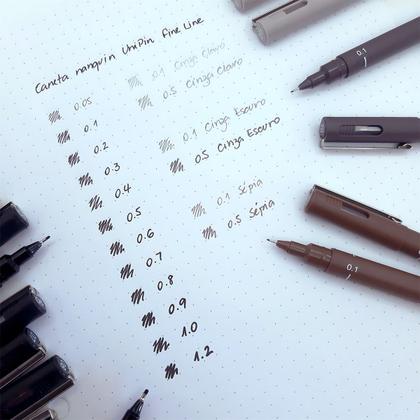 Caneta nanquin UniPin Fine Line
0.05
0.1
0.2
0.3
0.4
0.5
0.6
0.7
0.8
0.9
1.0
1.2
0.1 Cinza Claro
0.5 Cinza Claro
0.1 Cinza Escuro
0.5 Cinza Escuro
0.1 Sépia
0.5 Sépia
0.1
0.1